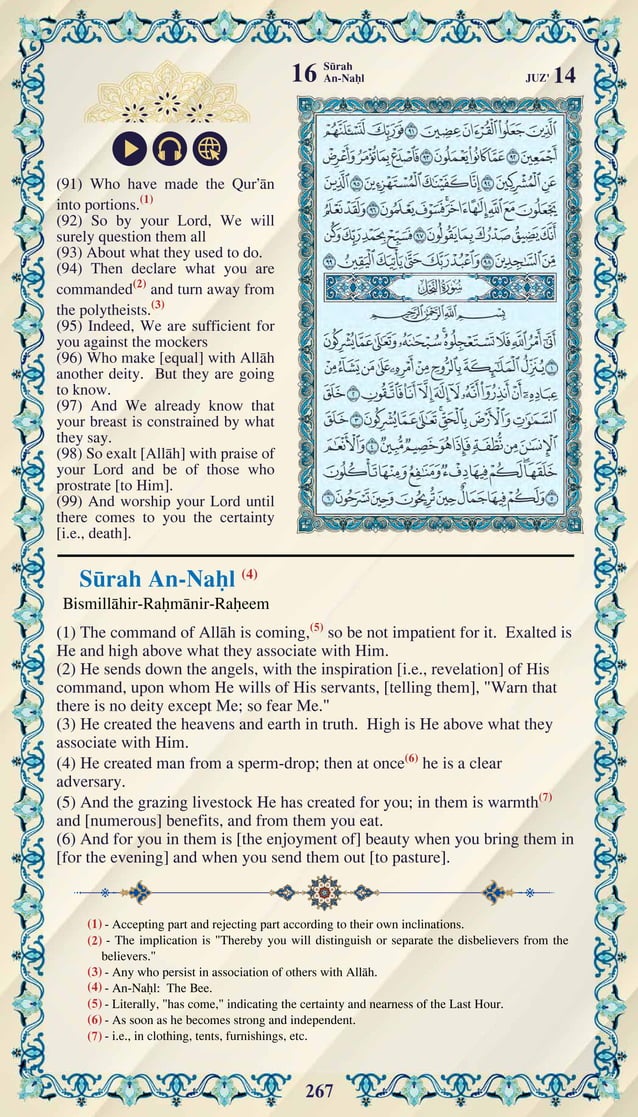 16 Sūrah
An-Naḥl
JUZ' 14
ٱلَّذِينَ جَعَلُوا۟ ٱلْقُرْءَانَ عِضِينَ ٩١ فَوَرَبِّكَ لَنَسْـَٔلَنَّهُمْ
أَجْمَعِينَ ٩٢ عَمَّا كَانُوا۟ يَعْمَلُونَ ٩٣ فَٱصْدَعْ بِمَا تُؤْمَرُ وَأَعْرِضْ
عَنِ ٱلْمُشْرِكِينَ ٩٤ إِنَّا كَفَيْنَـٰكَ ٱلْمُسْتَهْزِءِينَ ٩٥ ٱلَّذِينَ
يَجْعَلُونَ مَعَ ٱللَّهِ إِلَـٰهًا ءَاخَرَ فَسَوْفَ يَعْلَمُونَ ٩٦ وَلَقَدْ نَعْلَمُ
أَنَّكَ يَضِيقُ صَدْرُكَ بِمَا يَقُولُونَ ٩٧ فَسَبِّحْ بِحَمْدِ رَبِّكَ وَكُن
مِّنَ ٱلسَّـٰجِدِينَ ٩٨ وَٱعْبُدْ رَبَّكَ حَتَّىٰ يَأْتِيَكَ ٱلْيَقِينُ ٩٩
سُورَةُ النَّحْلِ
بِسْمِ ٱللَّهِ ٱلرَّحْمَـٰنِ ٱلرَّحِيمِ
أَتَىٰٓ أَمْرُ ٱللَّهِ فَلَا تَسْتَعْجِلُوهُ ۚ سُبْحَـٰنَهُۥ وَتَعَـٰلَىٰ عَمَّا يُشْرِكُونَ
١ يُنَزِّلُ ٱلْمَلَـٰٓئِكَةَ بِٱلرُّوحِ مِنْ أَمْرِهِۦ عَلَىٰ مَن يَشَآءُ مِنْ
عِبَادِهِۦٓ أَنْ أَنذِرُوٓا۟ أَنَّهُۥ لَآ إِلَـٰهَ إِلَّآ أَنَا۠ فَٱتَّقُونِ ٢ خَلَقَ
ٱلسَّمَـٰوَٰتِ وَٱلْأَرْضَ بِٱلْحَقِّ ۚ تَعَـٰلَىٰ عَمَّا يُشْرِكُونَ ٣ خَلَقَ
ٱلْإِنسَـٰنَ مِن نُّطْفَةٍ فَإِذَا هُوَ خَصِيمٌ مُّبِينٌ ٤ وَٱلْأَنْعَـٰمَ
خَلَقَهَا ۗ لَكُمْ فِيهَا دِفْءٌ وَمَنَـٰفِعُ وَمِنْهَا تَأْكُلُونَ
٥ وَلَكُمْ فِيهَا جَمَالٌ حِينَ تُرِيحُونَ وَحِينَ تَسْرَحُونَ ٦
(91) Who have made the Qur’ān
into portions.(1)
(92) So by your Lord, We will
surely question them all
(93) About what they used to do.
(94) Then declare what you are
commanded(2) and turn away from
the polytheists.(3)
(95) Indeed, We are sufficient for
you against the mockers
(96) Who make [equal] with Allāh
another deity. But they are going
to know.
(97) And We already know that
your breast is constrained by what
they say.
(98) So exalt [Allāh] with praise of
your Lord and be of those who
prostrate [to Him].
(99) And worship your Lord until
there comes to you the certainty
[i.e., death].
Sūrah An-Naḥl (4)
Bismillāhir-Raḥmānir-Raḥeem
(1) The command of Allāh is coming,(5) so be not impatient for it. Exalted is
He and high above what they associate with Him.
(2) He sends down the angels, with the inspiration [i.e., revelation] of His
command, upon whom He wills of His servants, [telling them], "Warn that
there is no deity except Me; so fear Me."
(3) He created the heavens and earth in truth. High is He above what they
associate with Him.
(4) He created man from a sperm-drop; then at once(6) he is a clear
adversary.
(5) And the grazing livestock He has created for you; in them is warmth(7)
and [numerous] benefits, and from them you eat.
(6) And for you in them is [the enjoyment of] beauty when you bring them in
[for the evening] and when you send them out [to pasture].
(1) - Accepting part and rejecting part according to their own inclinations.
(2) - The implication is "Thereby you will distinguish or separate the disbelievers from the
believers."
(3) - Any who persist in association of others with Allāh.
(4) - An-Naḥl: The Bee.
(5) - Literally, "has come," indicating the certainty and nearness of the Last Hour.
(6) - As soon as he becomes strong and independent.
(7) - i.e., in clothing, tents, furnishings, etc.
267